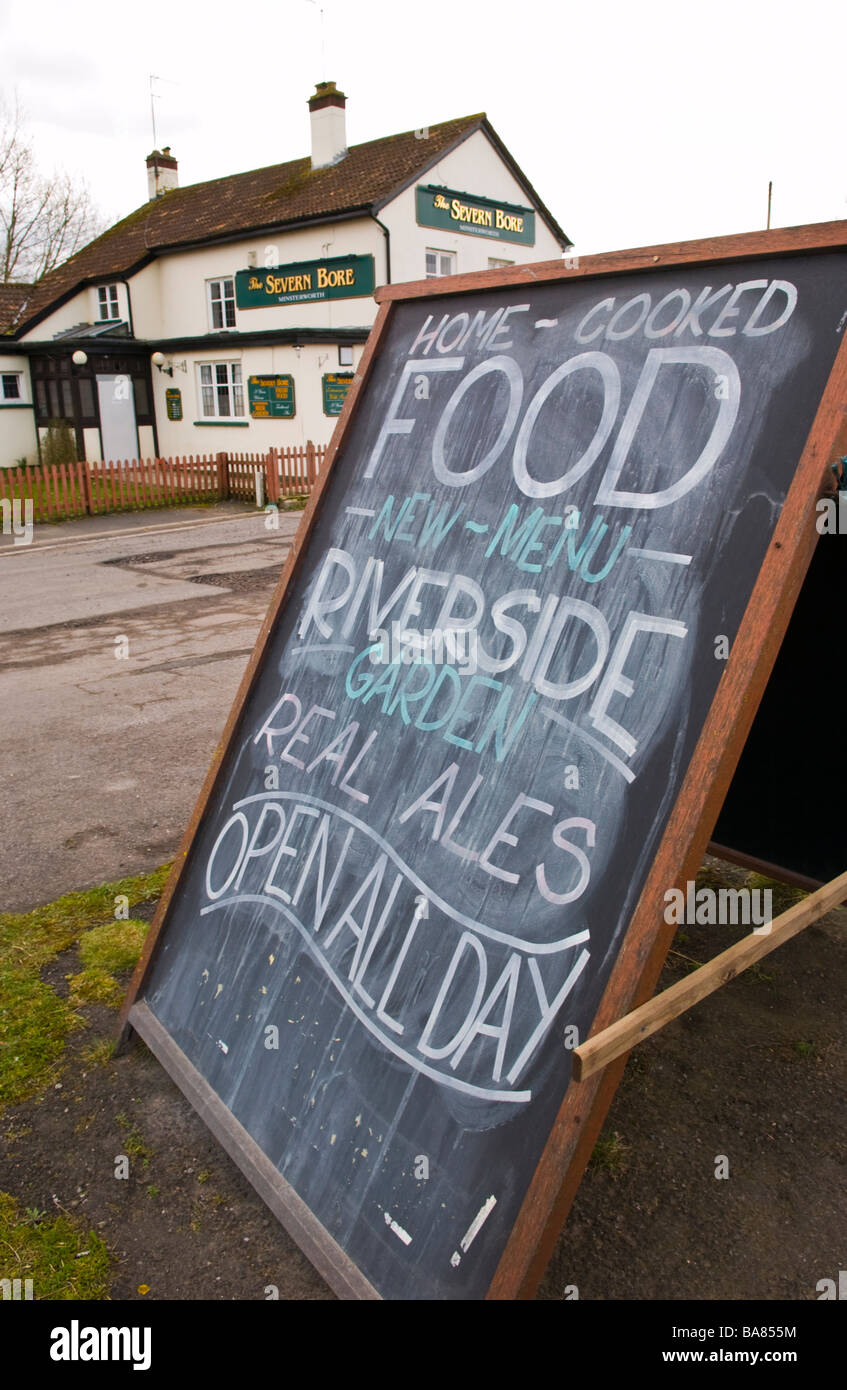 The SEVERN BORE
The SEVERN BORE
MINSTERWORTH
HOME ~ COOKED
FOOD
- NEW ~ MENU -
RIVERSIDE
GARDEN
REAL ALES
OPEN ALL DAY
a
alamy
Image ID: BA855M
www.alamy.com